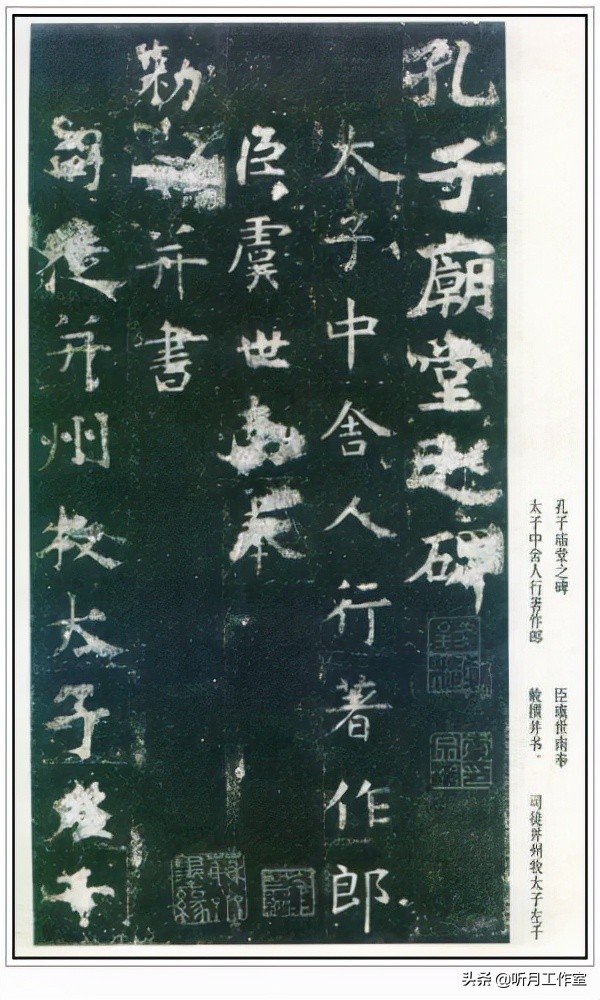 孔子庙堂之碑
太子中舍人行著作郎
臣虞世南奉
敕撰并书。
司徒并州牧太子左千
孔子廟堂之碑
太子中舍人行著作郎
臣虞世南奉
勅撰并書
司徒并州牧太子左千
头条 @听月工作室